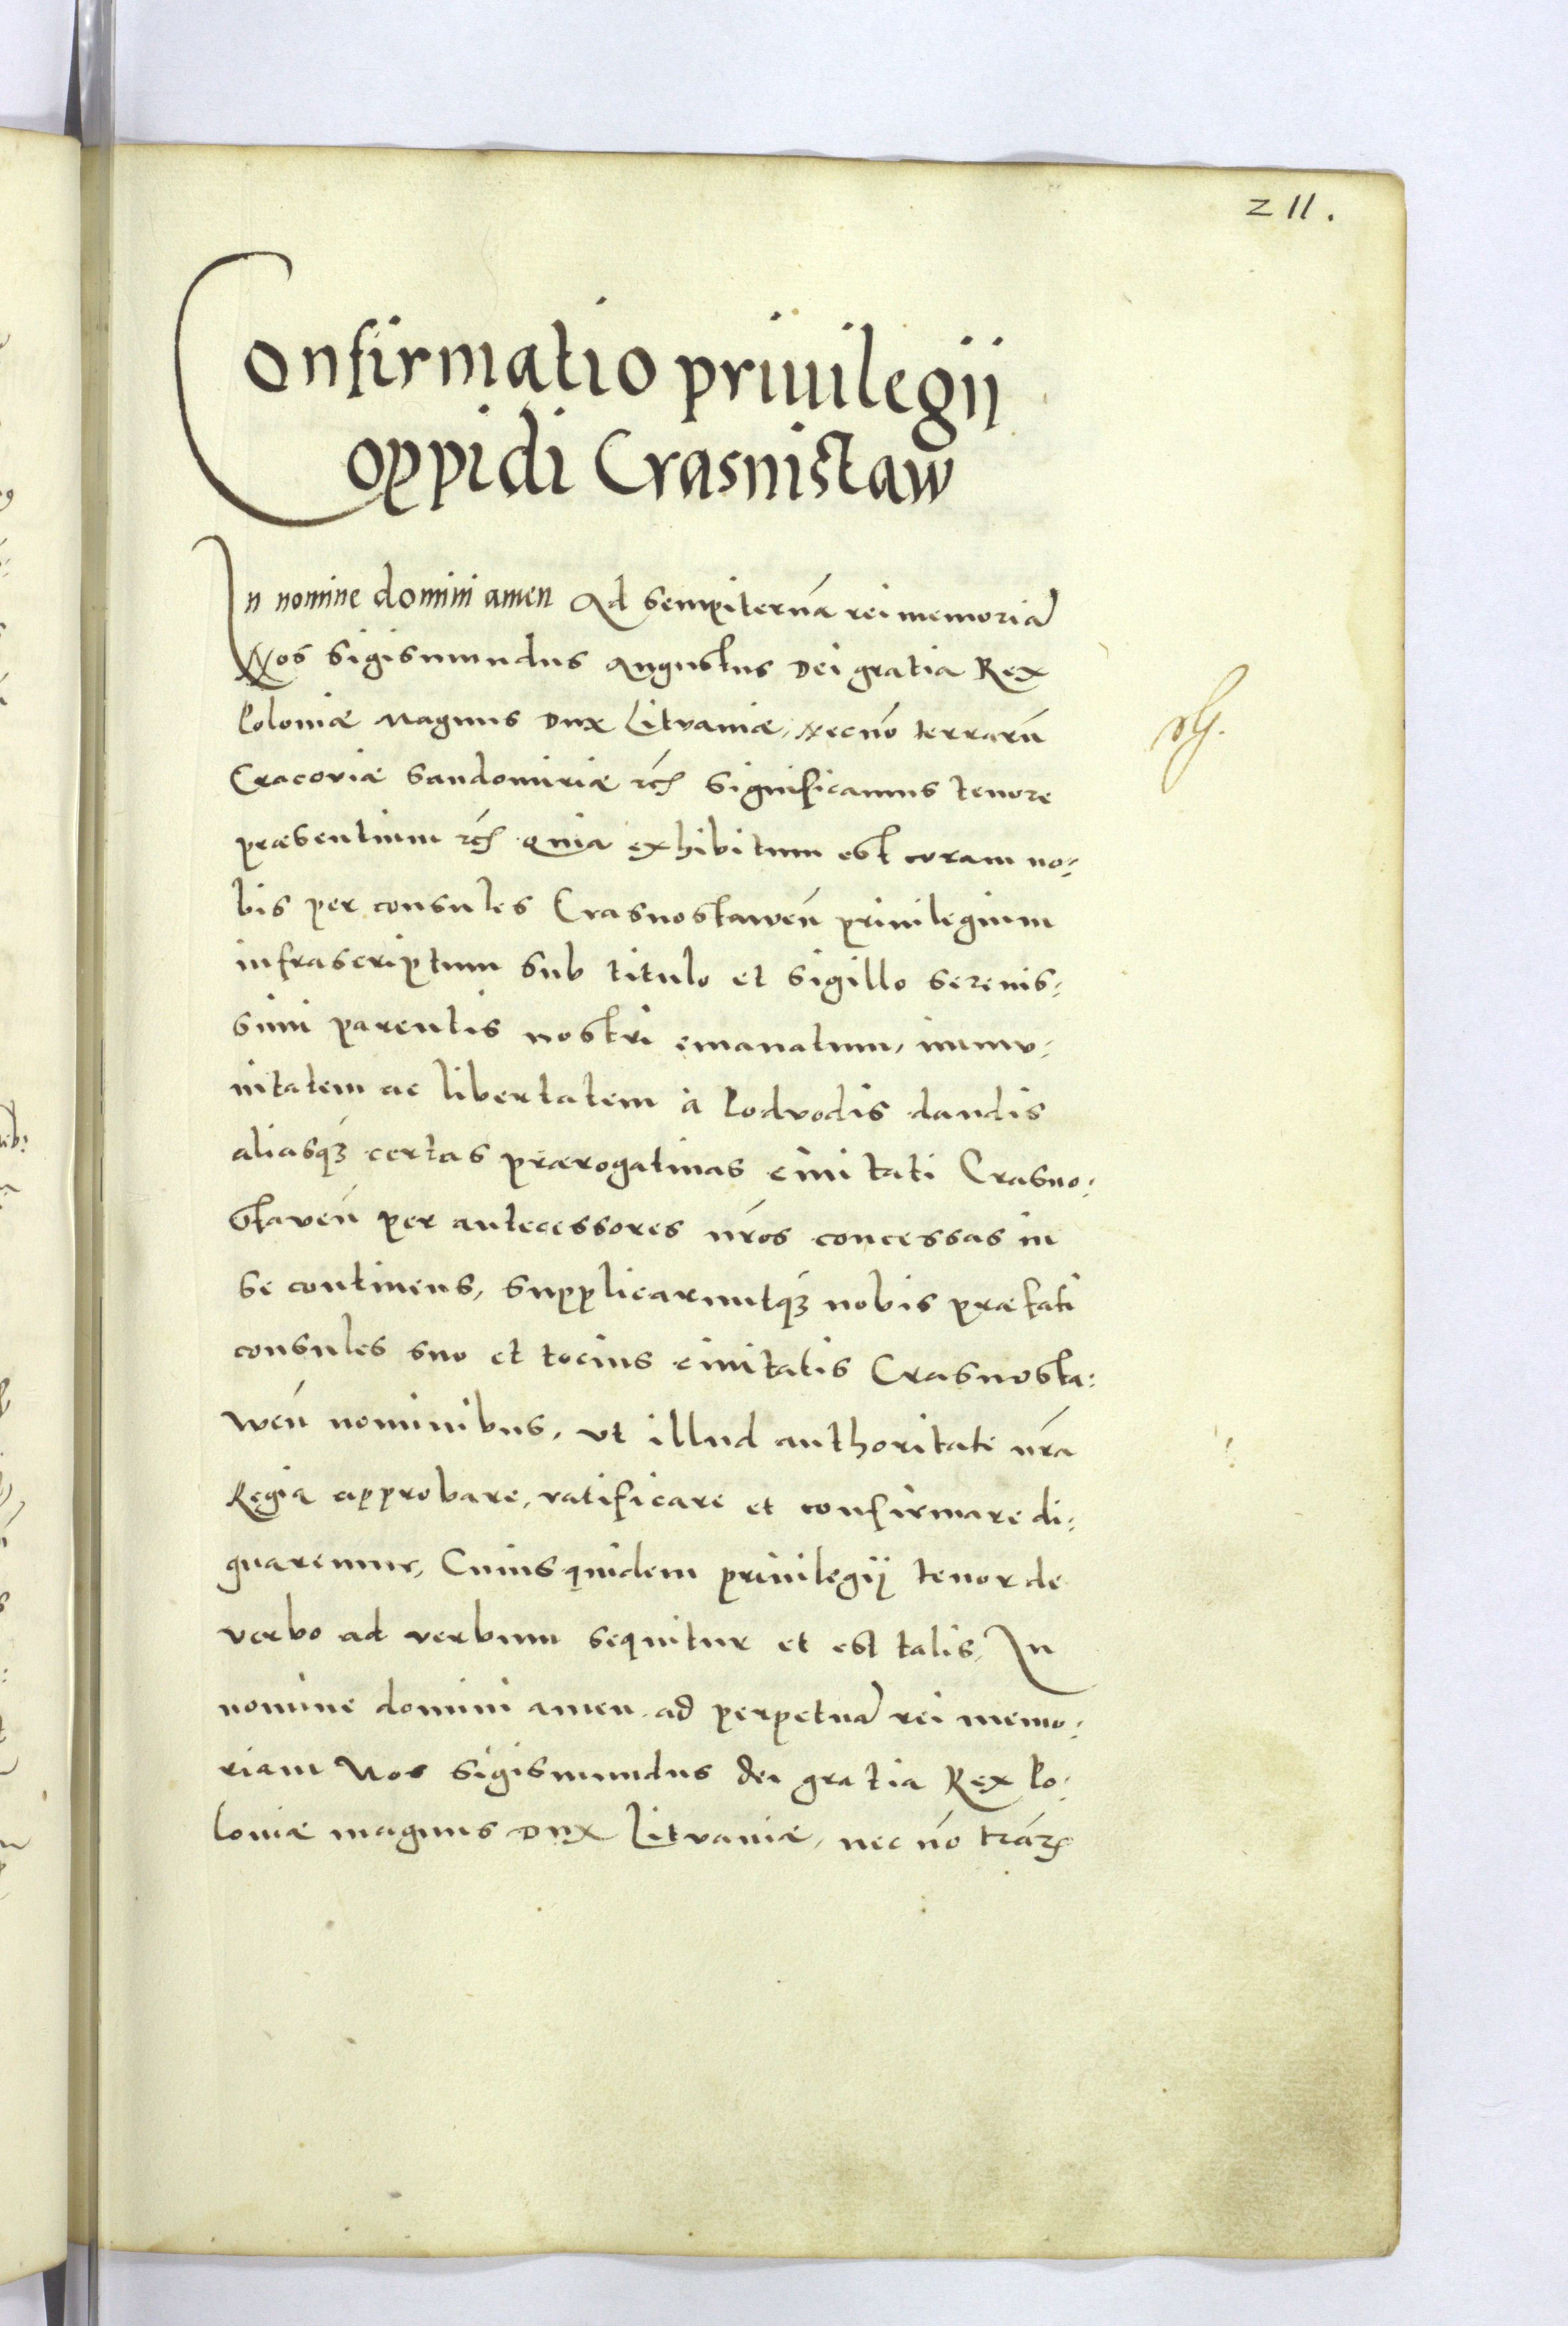 211.
Confirmatio priuilegii
oppidi Crasnistaw
In nomine domini amen Ad sempiternā rei memoriā
Nos Sigismundus Augustus Dei gratia Rex
Poloniæ Magnus Dux Litvaniæ, Necnō terrarū
Cracoviæ Sandomiriæ etc̄ Significamus tenore
præsentium etc̄ quia exhibitum est coram no:
bis per consules Crasnostawen̄ priuilegium
infrascriptum sub titulo et sigillo serenis:
simi parentis nostri emanatum, immu:
nitatem ac libertatem à Podvodis dandis
aliasq́ꝫ certas prærogatiuas ciuitati Crasno:
staven̄ per antecessores nr̄os concessas in
se continens, supplicaruntq́ꝫ nobis præfati
consules suo et tocius ciuitatis Crasnosta:
wen̄ nominibus, vt illud authoritate nr̄a
Regia approbare, ratificare et confirmare di:
gnaremur, Cuius quidem priuilegij tenor de
verbo ad verbum sequitur et est talis, In
nomine domini amen. ad perpetuā rei memo:
riam Nos Sigismundus dei gratia Rex Po:
loniæ magnus Dux Litvaniæ, nec nō trāꝝ